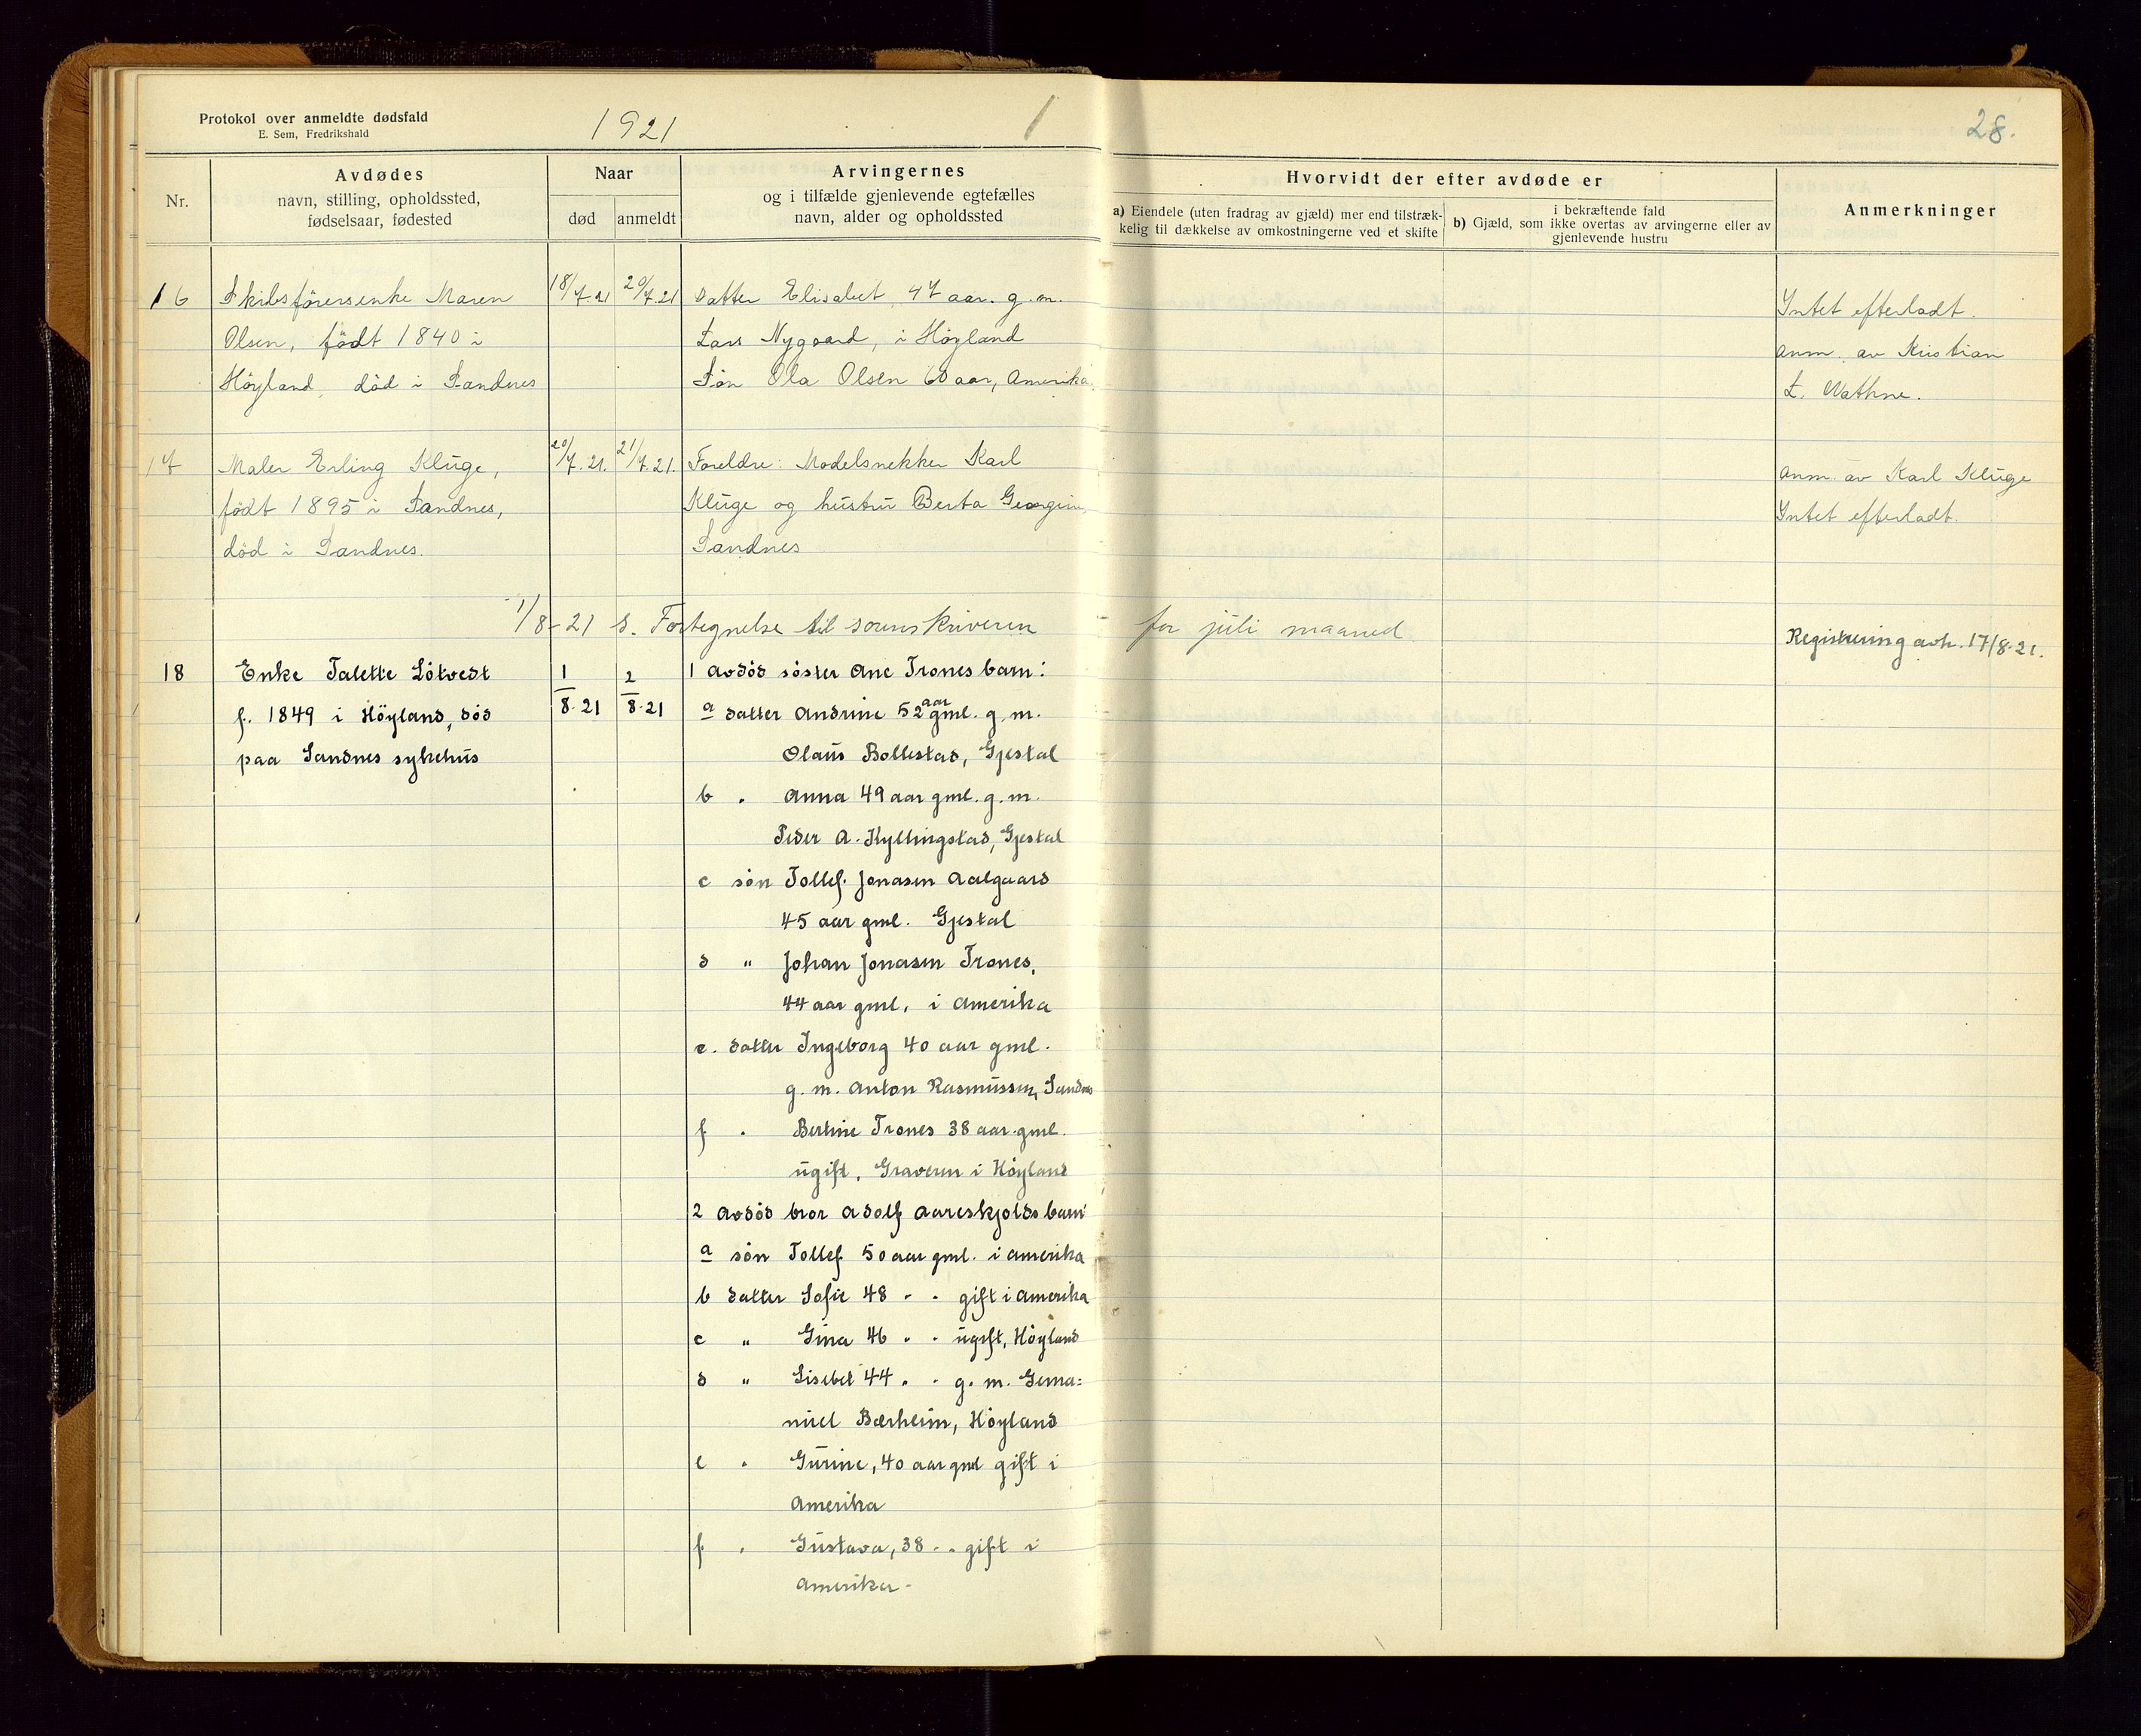 Protokol over anmeldte dødsfald
E. Sem, Fredrikshald
1921
28.
Nr.
Avdødes
navn, stilling, opholdssted,
fødselsaar, fødested
Naar
død
anmeldt
Arvingernes
og i tilfælde gjenlevende egtefælles
navn, alder og opholdssted
Hvorvidt der efter avdøde er
a) Eiendele (uten fradrag av gjæld) mer end tilstræk-
kelig til dækkelse av omkostningerne ved et skifte
i bekræftende fald
b) Gjæld, som ikke overtas av arvingerne eller av
gjenlevende hustru
Anmerkninger
16 Skibsförersenke Maren 18/7.21 20/7.21 Datter Elisabet, 47 aar. g.m. Intet efterladt.
Olsen, födt 1840 i Lars Nygaard, i Höyland anm. av Kristian
Höyland, död i Sandnes Sön Ola Olsen 60 aar, Amerika. L. Wathne.
17 Maler Erling Kluge, 20/7.21. 21/7.21. Foreldre: Modelsnekker Karl anm. av Karl Kluge
födt 1895 i Sandnes, Kluge og hustru Berta Georgine, Intet efterladt.
död i Sandnes. Sandnes
1/8-21 s. Fortegnelse til sorenskriveren for juli maaned
Registrering avh. 17/8-21.
18 Enke Talette Lötvedt 1/8-21 2/8-21 1 avdöd söster Ane Trones barn:
f. 1849 i Höyland, död a datter Andrine 52 aar gml. g.m.
paa Sandnes sykehus Olaus Bollestad, Gjestal
b " Anna 49 aar gml. g.m.
Peder A. Kyllingstad, Gjestal
c sön Tollef Jonasen Aalgaard
45 aar gml. Gjestal
d " Johan Jonasen Trones,
44 aar gml. i Amerika
e. datter Ingeborg 40 aar gml.
g. m. Anton Rasmussen, Sandnes
f " Bertine Trones 38 aar gml.
ugift, Graveren i Höyland
2 avdöd bror Adolf Aareskjolds barn:
a sön Tollef 50 aar gml. i Amerika
b datter Sofie 48 " " gift i Amerika
c " Gina 46 " " ugift, Höyland
d " Lisebet 44 " " g. m. Gema=
niel Bærheim, Höyland
e " Gurine, 40 aar gml gift i
Amerika
f " Gustava, 38 " " gift i
Amerika-